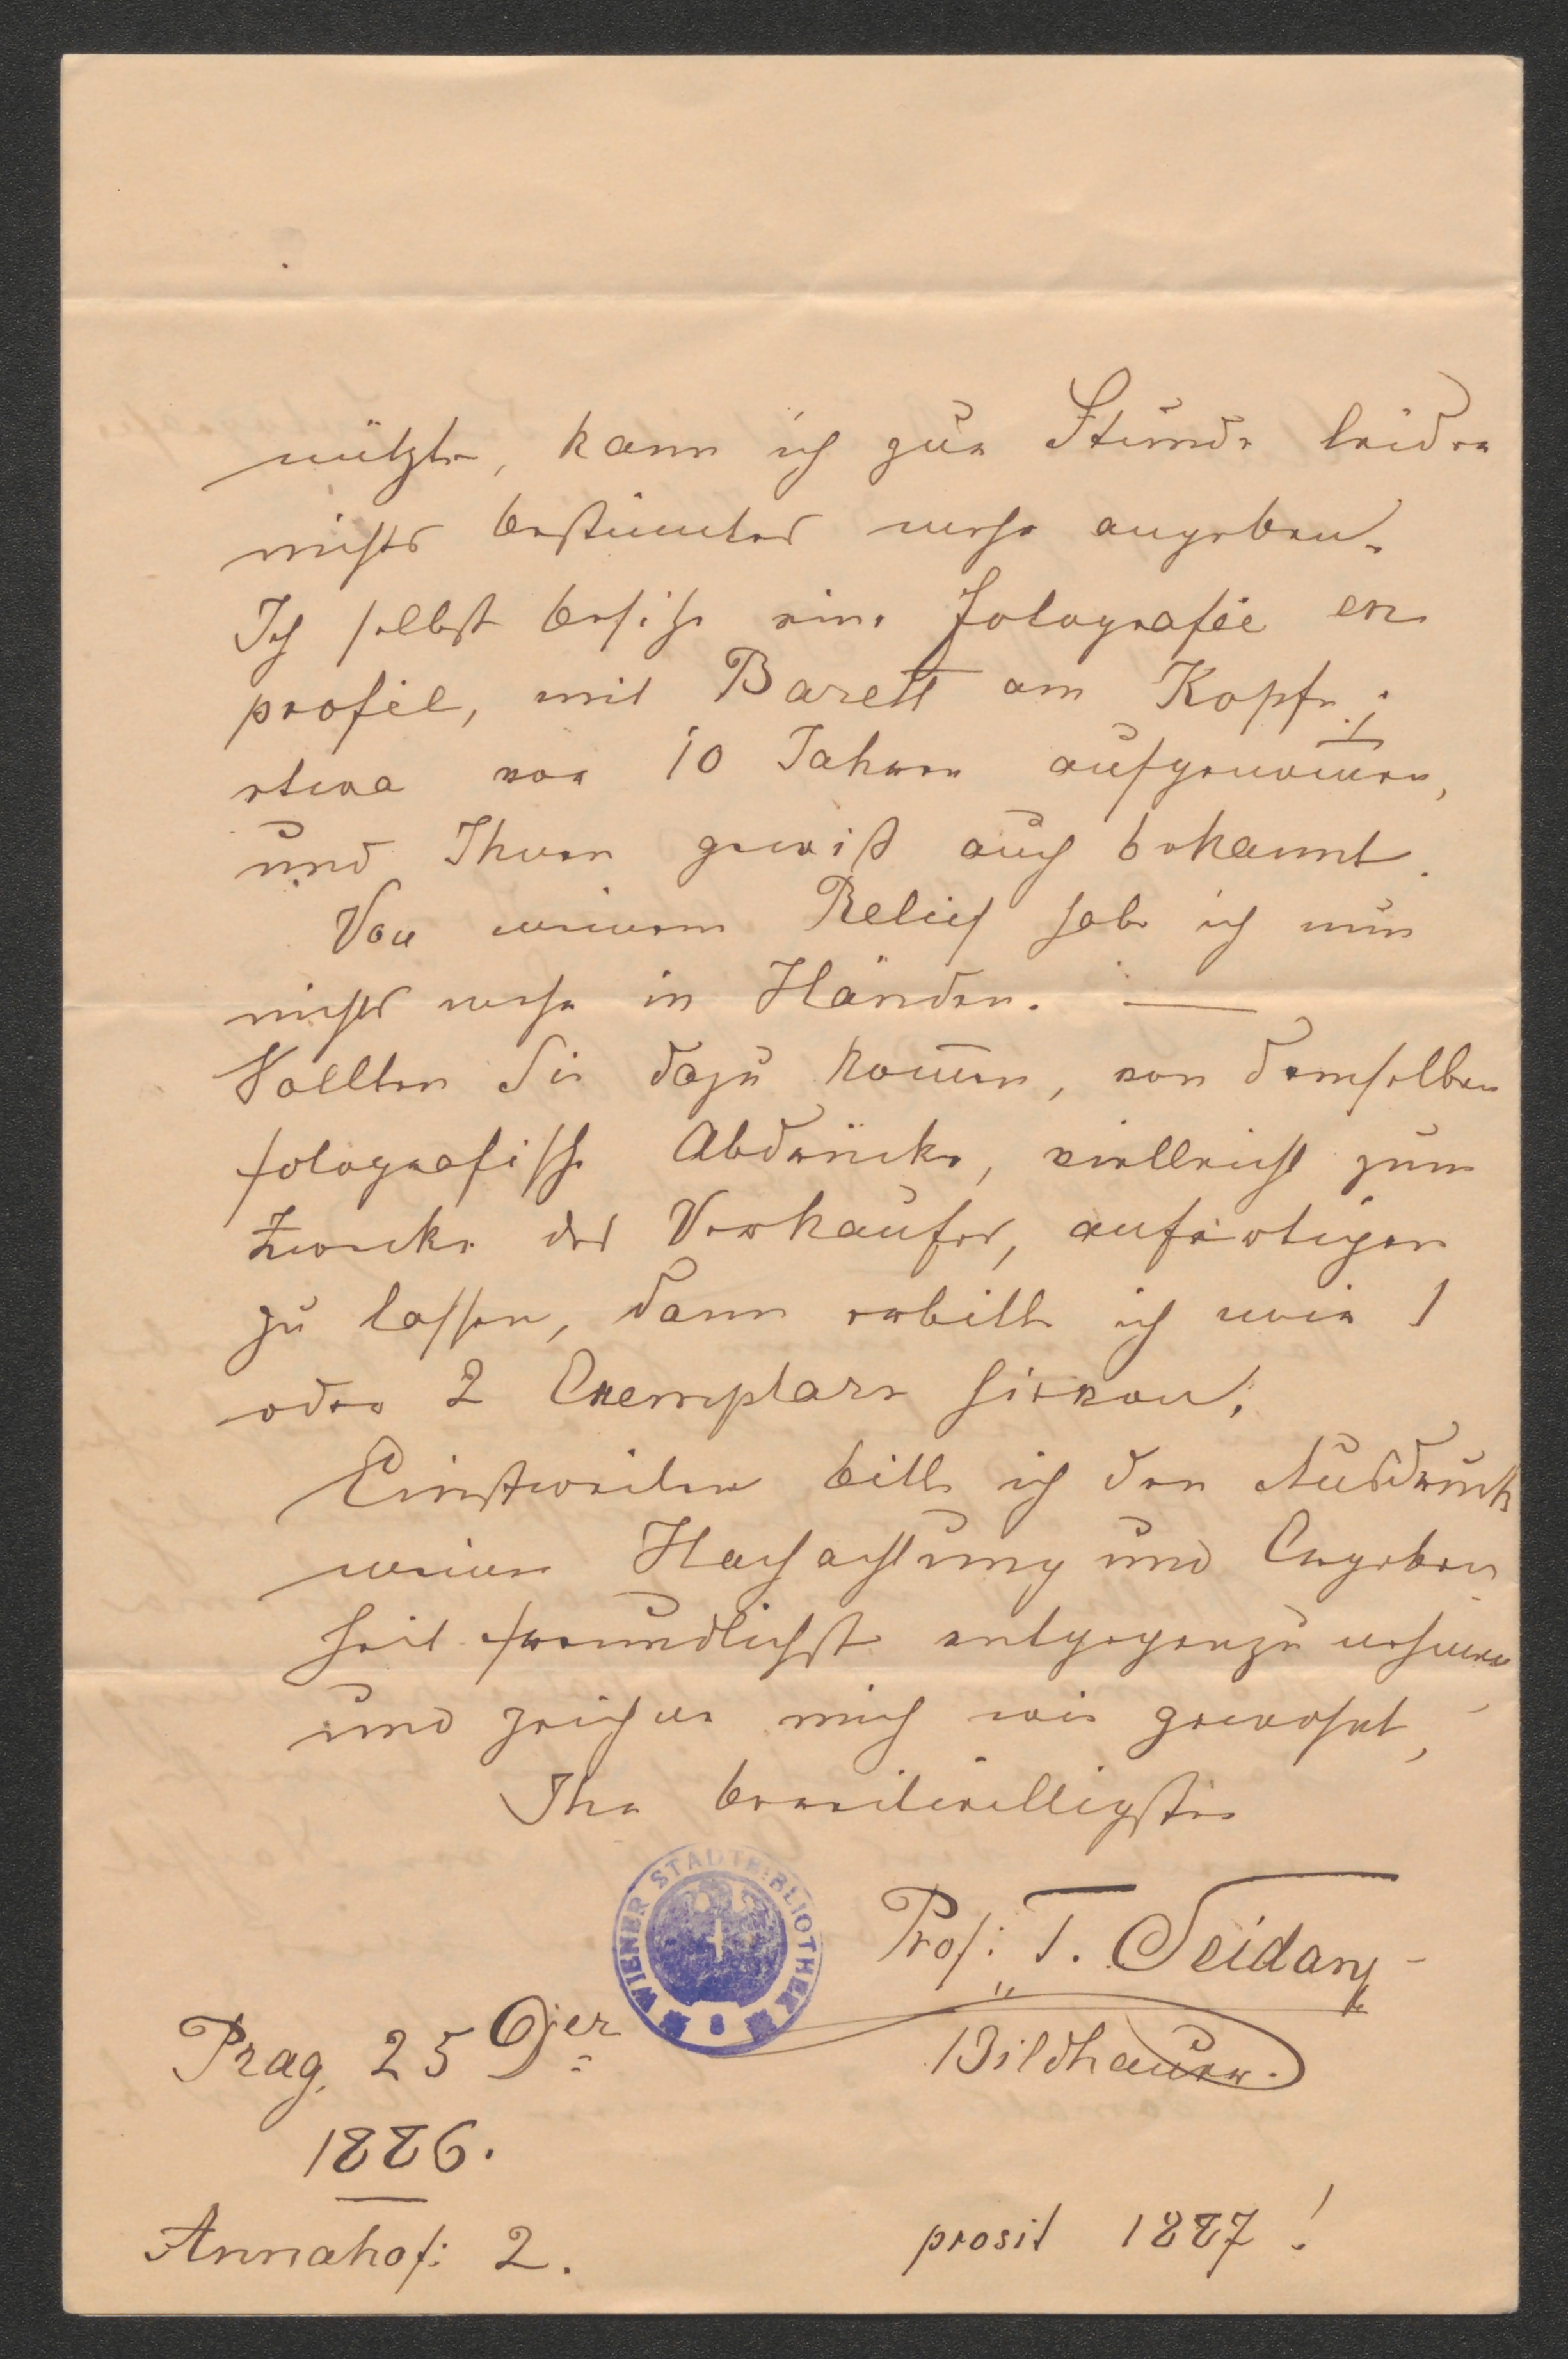 nützte, kann ich zur Stunde leider
nichts bestim̄tes mehr angeben.
Ich selbst besitze eine Fotografie en
profil, mit Barett am Kopfe;
etwa vor 10 Jahren aufgenom̄en,
und Ihnen gewiß auch bekannt.
Von meinem Relief habe ich nun
nichts mehr in Händen. —
Sollten Sie dazu kom̄en, von demselben
fotografische Abdrücke, vielleicht zum
Zwecke des Verkaufes, anfertigen
zu lassen, dann erbitte ich mir 1
oder 2 Exemplare hievon.
Einstweilen bitte ich den Ausdruck
meiner Hochachtung und Ergeben
heit freundlichst entgegenzunehmen
und zeichne mich wie gewohnt,
Ihr bereitwilligster
WIENER STADTBIBLIOTHEK
Prof: T. Seidan
Bildhauer.
Prag, 25 Xber
1886.
Annahof: 2.
prosit 1887!